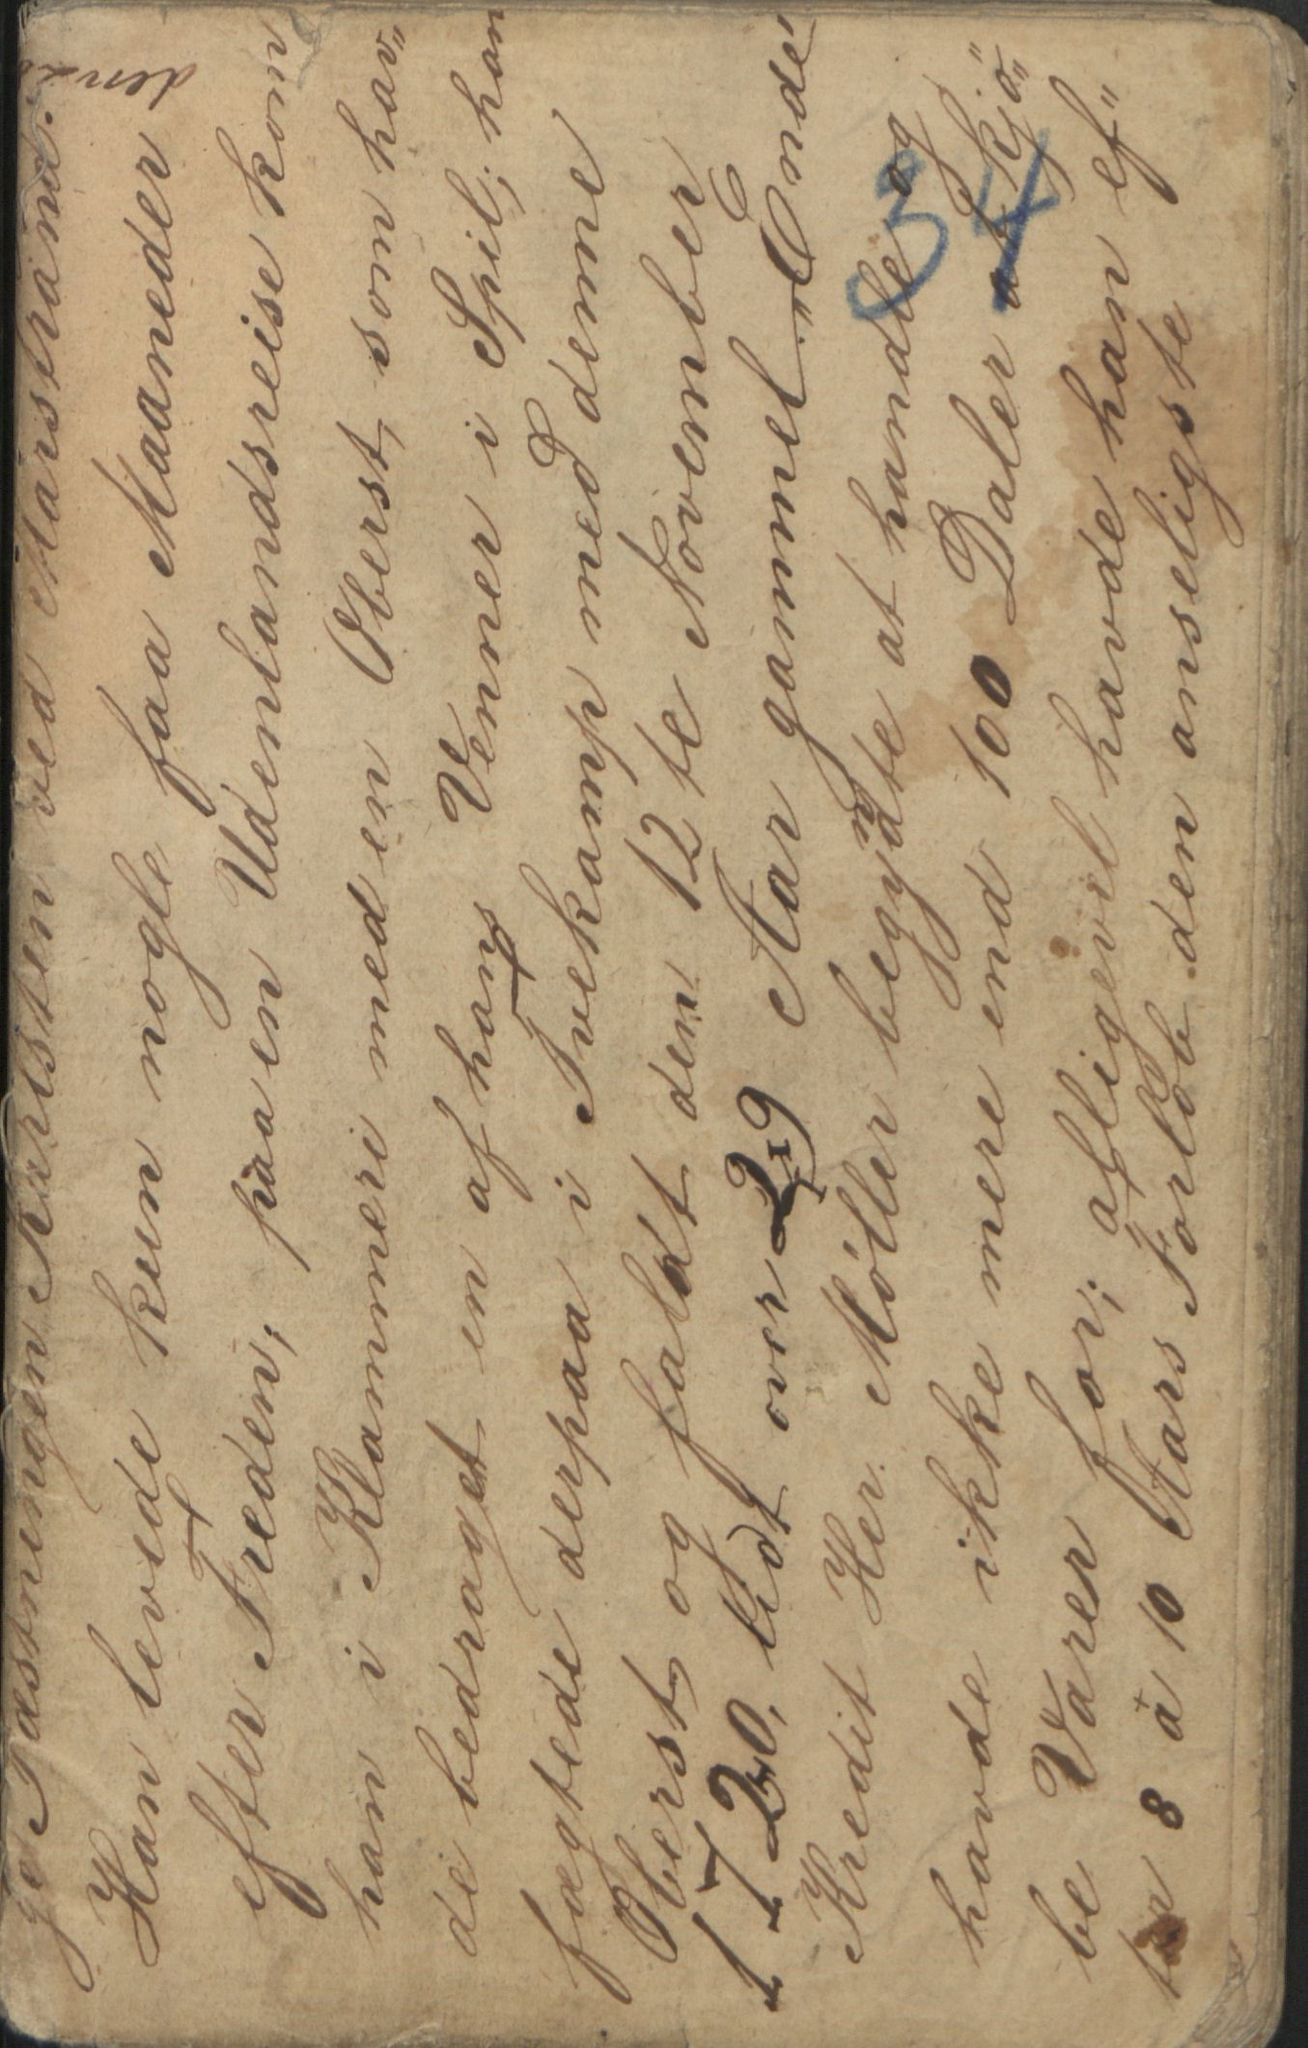 ge Fæstningen Karlsten ved Marstrand.
Han levede kun nogle faa Maaneder
efter Freden; paa en Udenlandsreise kom
han i Klammeri med en Oberst, som hav„
de bedraget en af hans Venner i Spil; han
fægtede derpaa i Tvekamp med denne
Oberst og faldt den 12te November
1720, lidt over 29 Aar gammel. „Onde
Kredit Her. Møller begyndte at handle og
havde ikke mere end 100 Daler at kjö„
be Varer for; alligevel havde han ef„
ter 8 à 10 Aars Forløb den anseligste
34